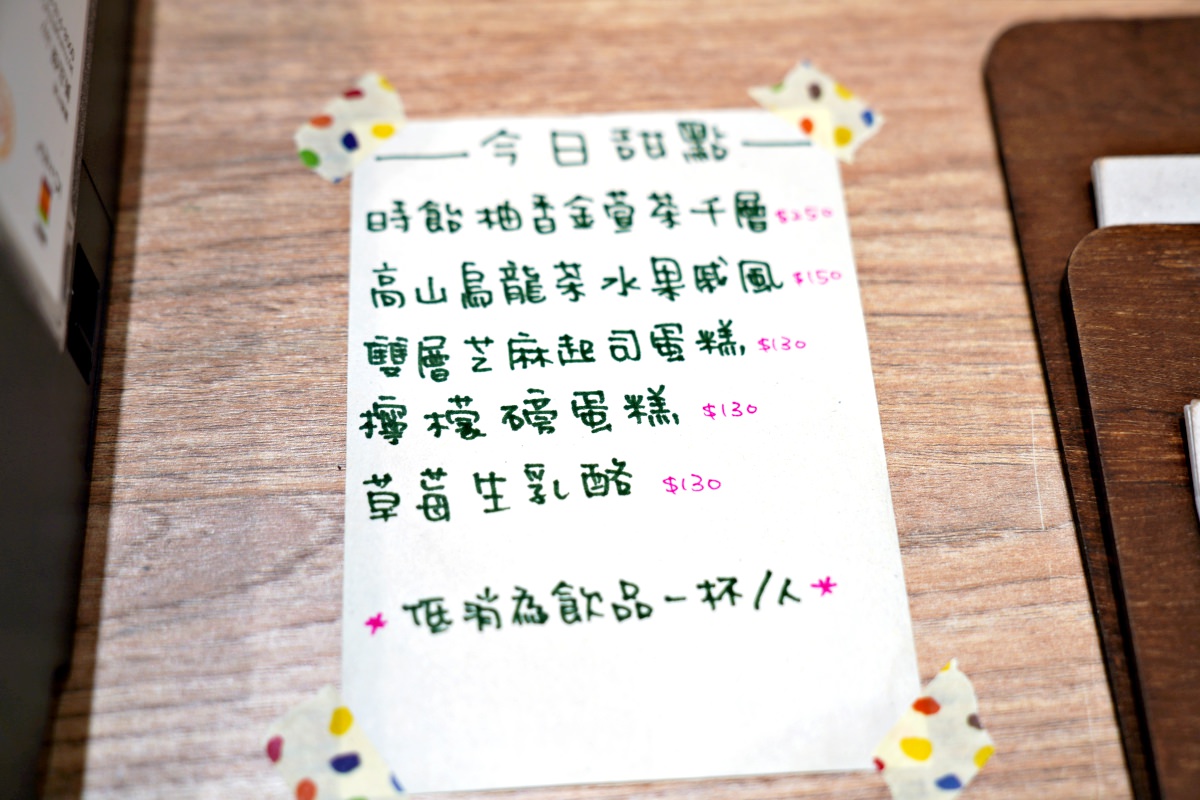 今日甜點
時飴柚香金萱茶千層 $250
高山烏龍茶水果戚風 $150
雙層芝麻起司蛋糕, $130
檸檬磅蛋糕, $130
草莓生乳酪 $130
* 低消為飲品一杯/人 *